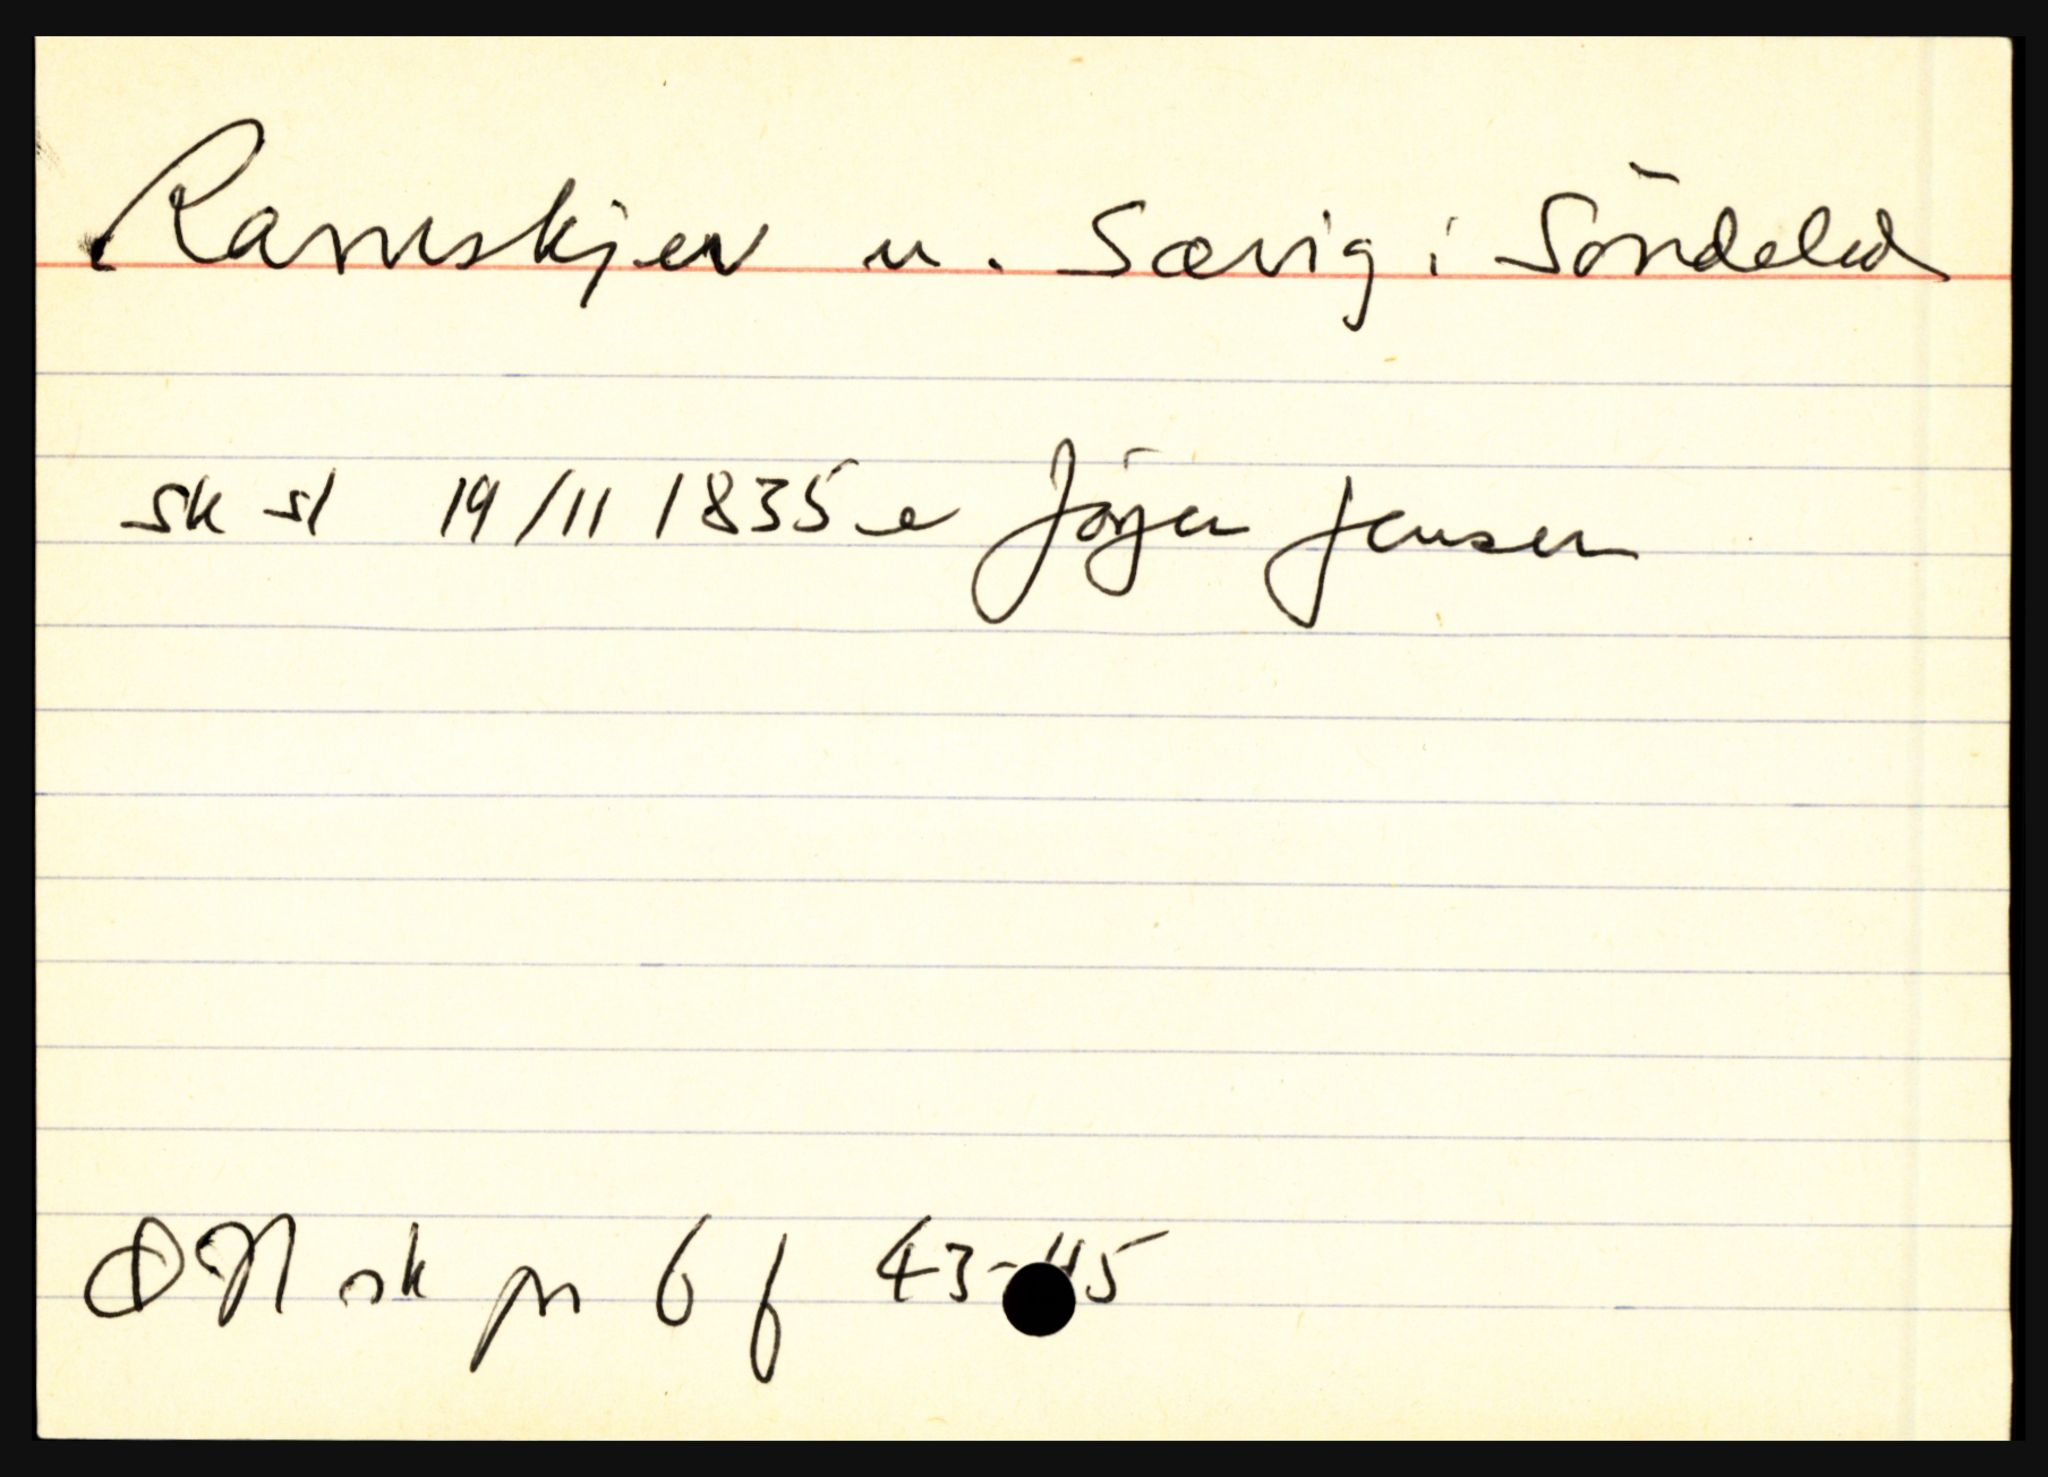 Ramskjev u. Sævig i Söndeled
sk sl 19/11 1835 e Jörgen Jensen
ØN sk pr 6 f 43-45